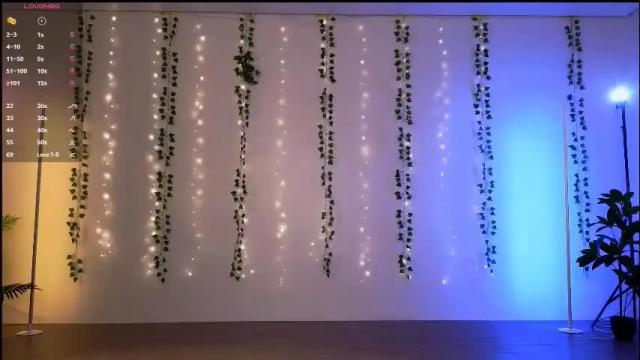 LOVENSE
2–3 1s
4–10 2s
11–50 5s
51–100 10s
≥101 15s
22 20s
33 30s
44 40s
55 50s
69 Lvns:1-5